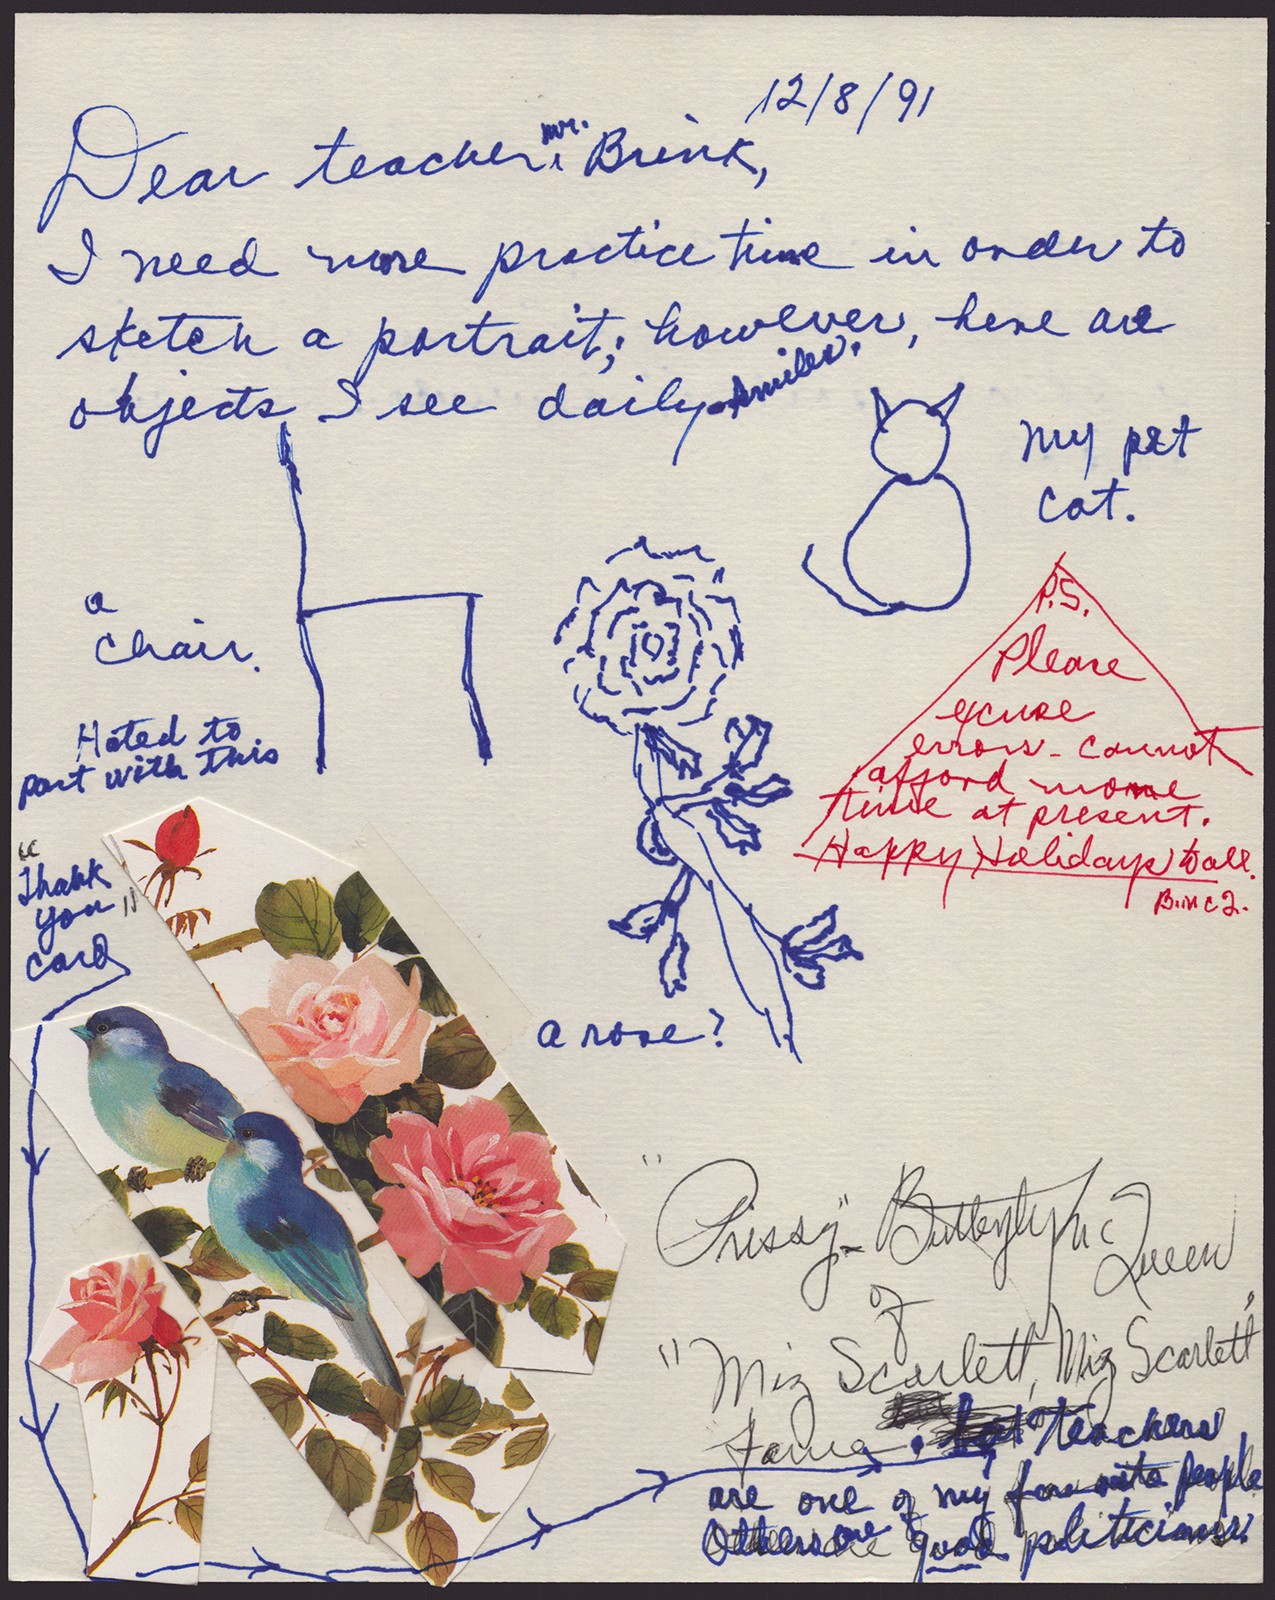 12/8/91
Dear teacher, Mr. Brink,
I need more practice time in order to
sketch a portrait; however, here are
objects I see daily - smiles.
my pet
cat.
a
chair.
P.S.
Please
excuse
errors - cannot
afford more
time at present.
Happy Holidays to all.
Hated to
part with this
"Thank
you"
card
a rose?
"Prissy" - Butterfly McQueen
of
"Miz Scarlett, Miz Scarlett"
fame. teachers
are one of my favorite people
Others are good politicians.